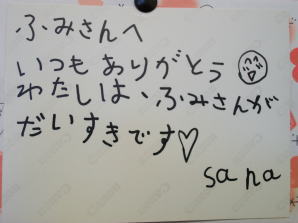 ふみさんへ
いつもありがとう
わたしは、ふみさんが
だいすきです♡
sana